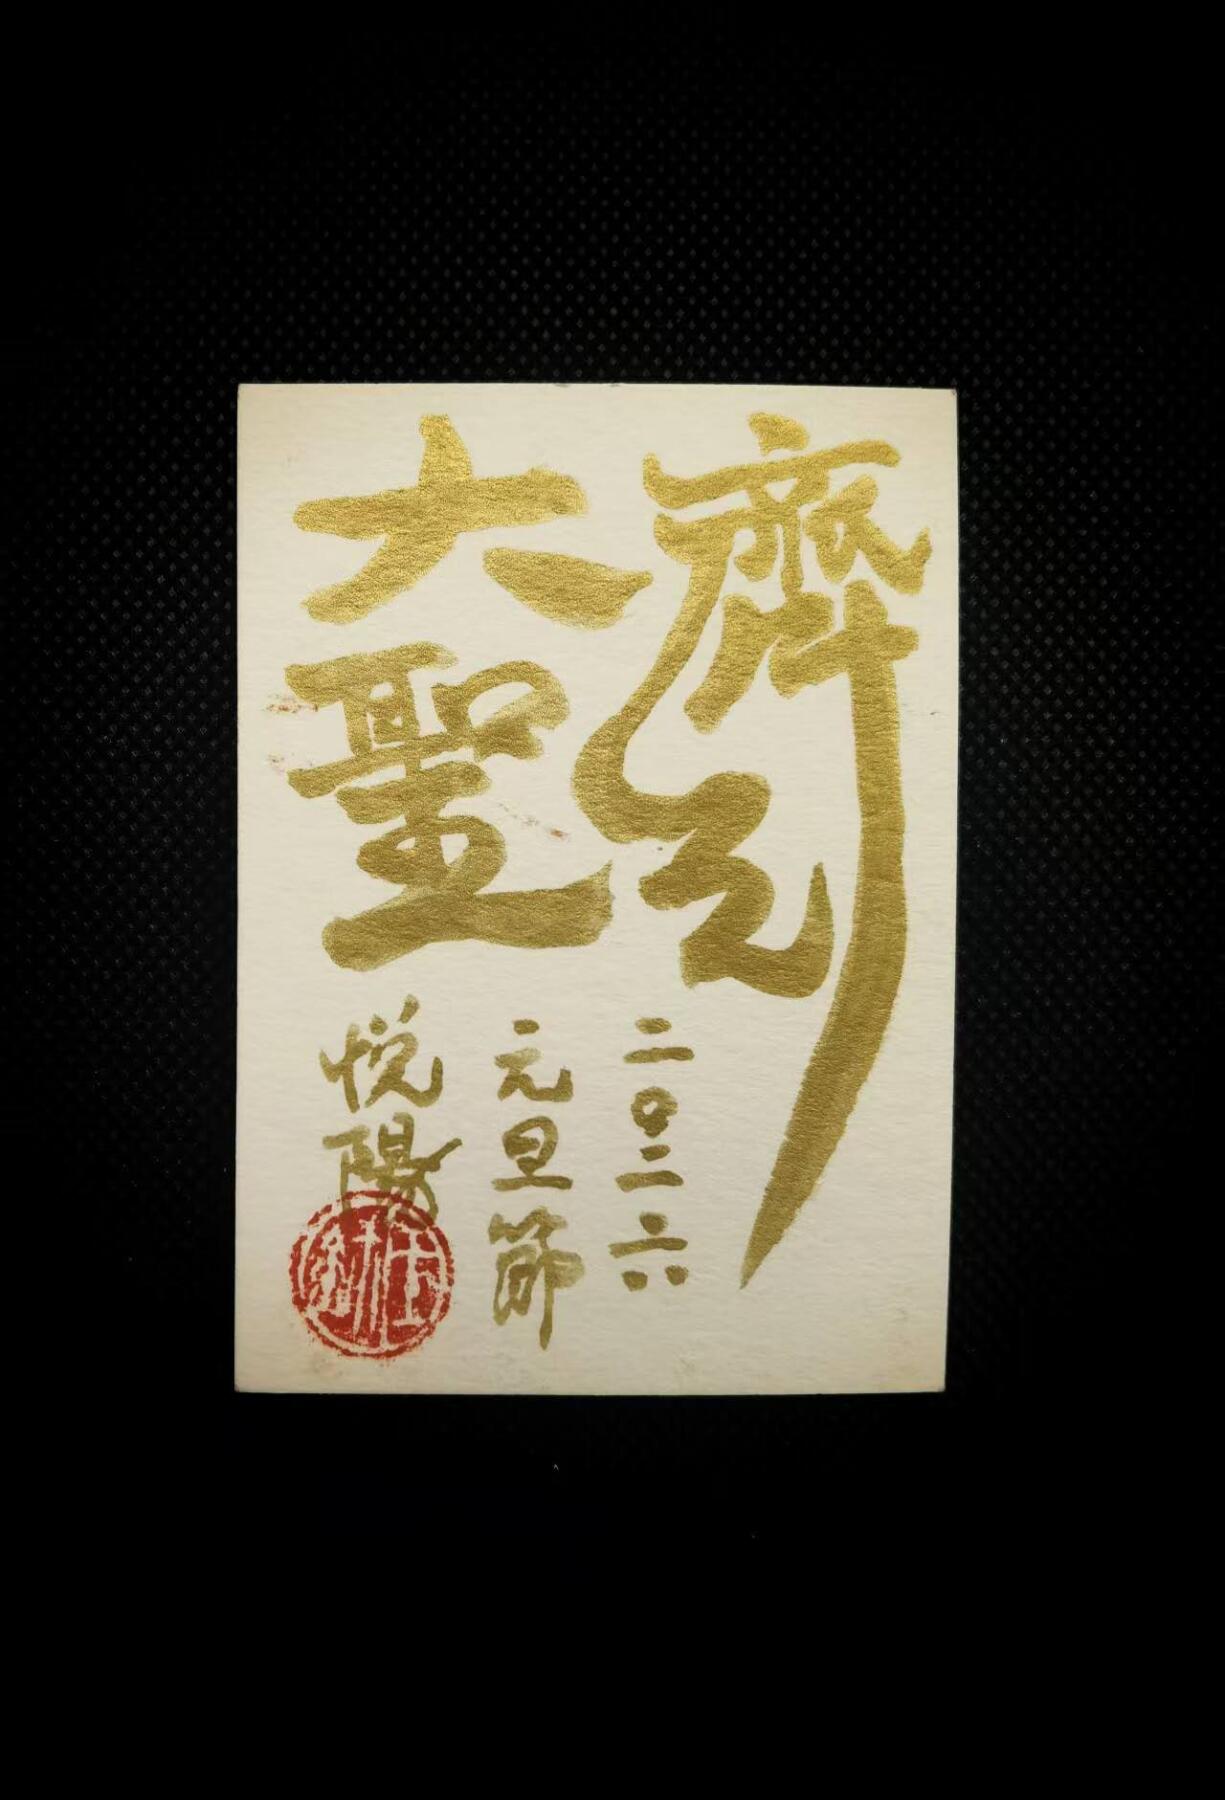 齊天
大聖
二〇二六
元旦節
悦陽